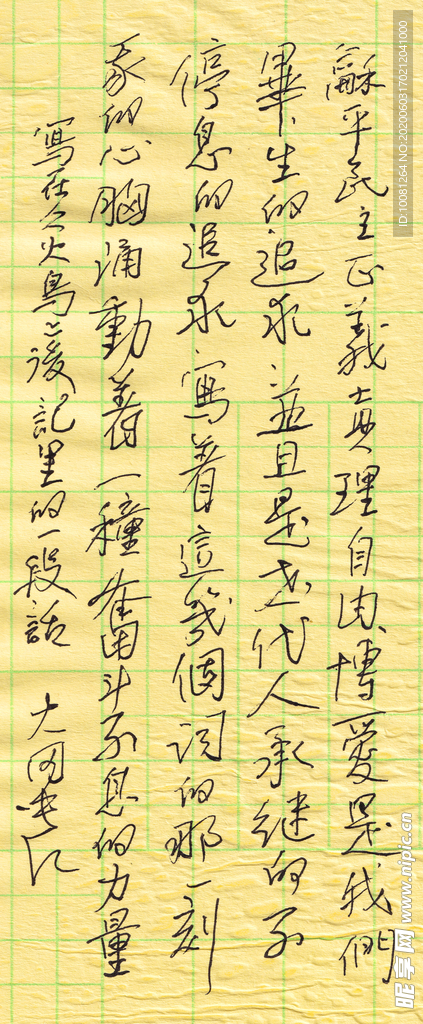 龢平民主正義真理自由博愛是我們
畢生的追求並且是世代人承継的不
停息的追求寫着這幾個詞的那一刻
我的心胸涌動着一種奮斗不息的力量
寫在火鳥後記里的一段話
ID:10081264 NO:20200603170212041000
昵享网 www.nipic.cn